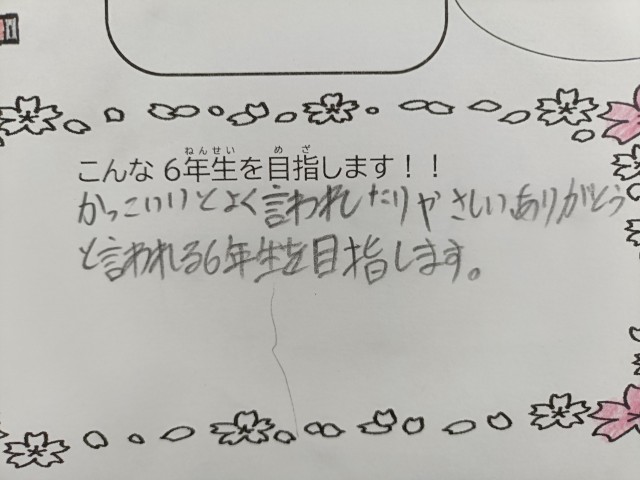 こんな6年生を目指します！！
かっこいいとよく言われたりやさしいありがとう
と言われる6年生を目指します。